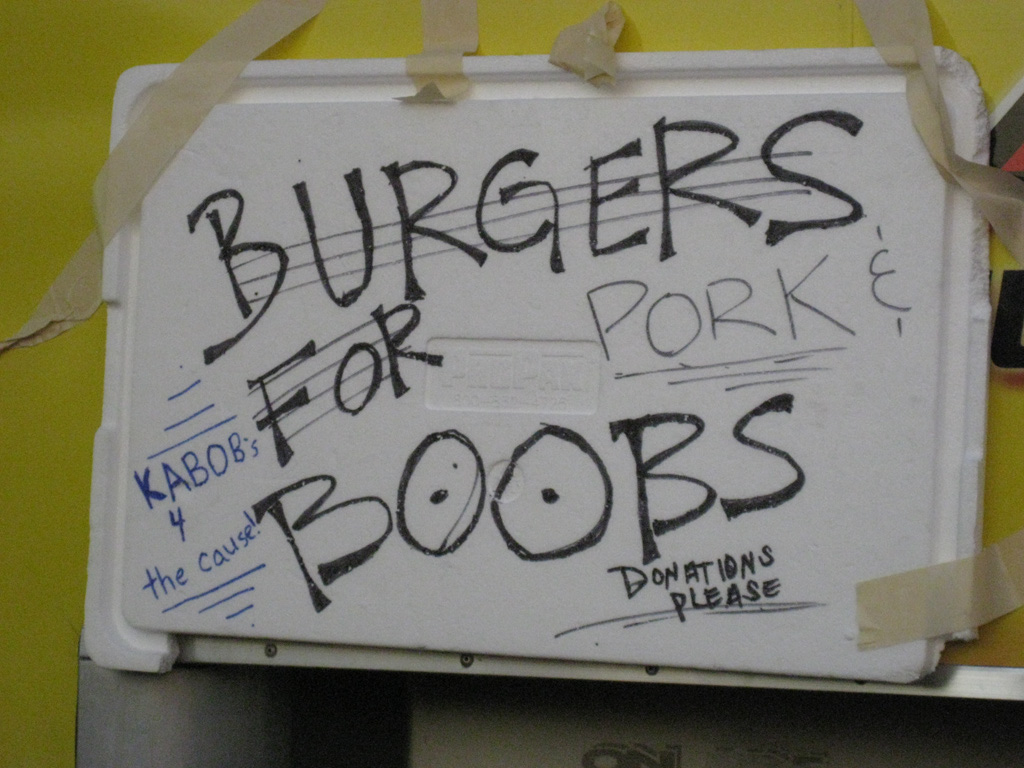 BURGERS
PORK &
FOR
BOOBS
KABOB's
4
the cause!
DONATIONS
PLEASE